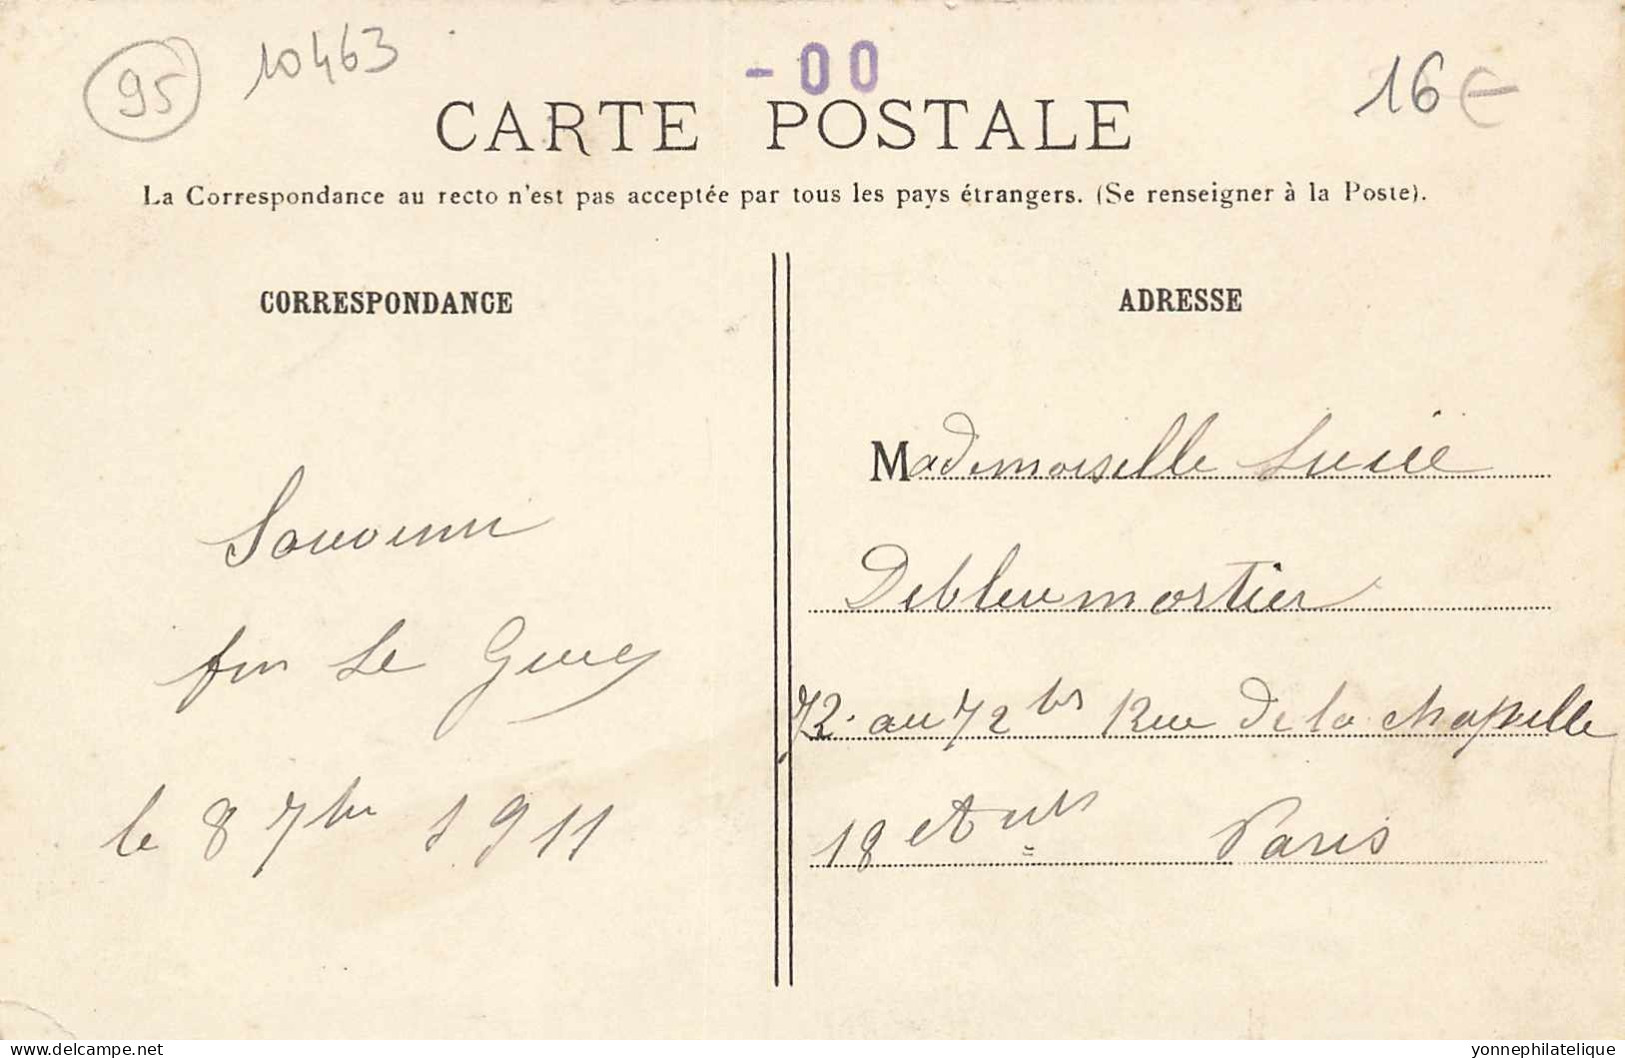 95
10463
- 00
16€
CARTE POSTALE
La Correspondance au recto n'est pas acceptée par tous les pays étrangers. (Se renseigner à la Poste).
CORRESPONDANCE
Souvenir
le 8 7bre 1911
ADRESSE
Mademoiselle Lucie
Debleumortier
72 au 72 bis Rue de la chapelle
18e Paris
delcampe.net
yonnephilatelique